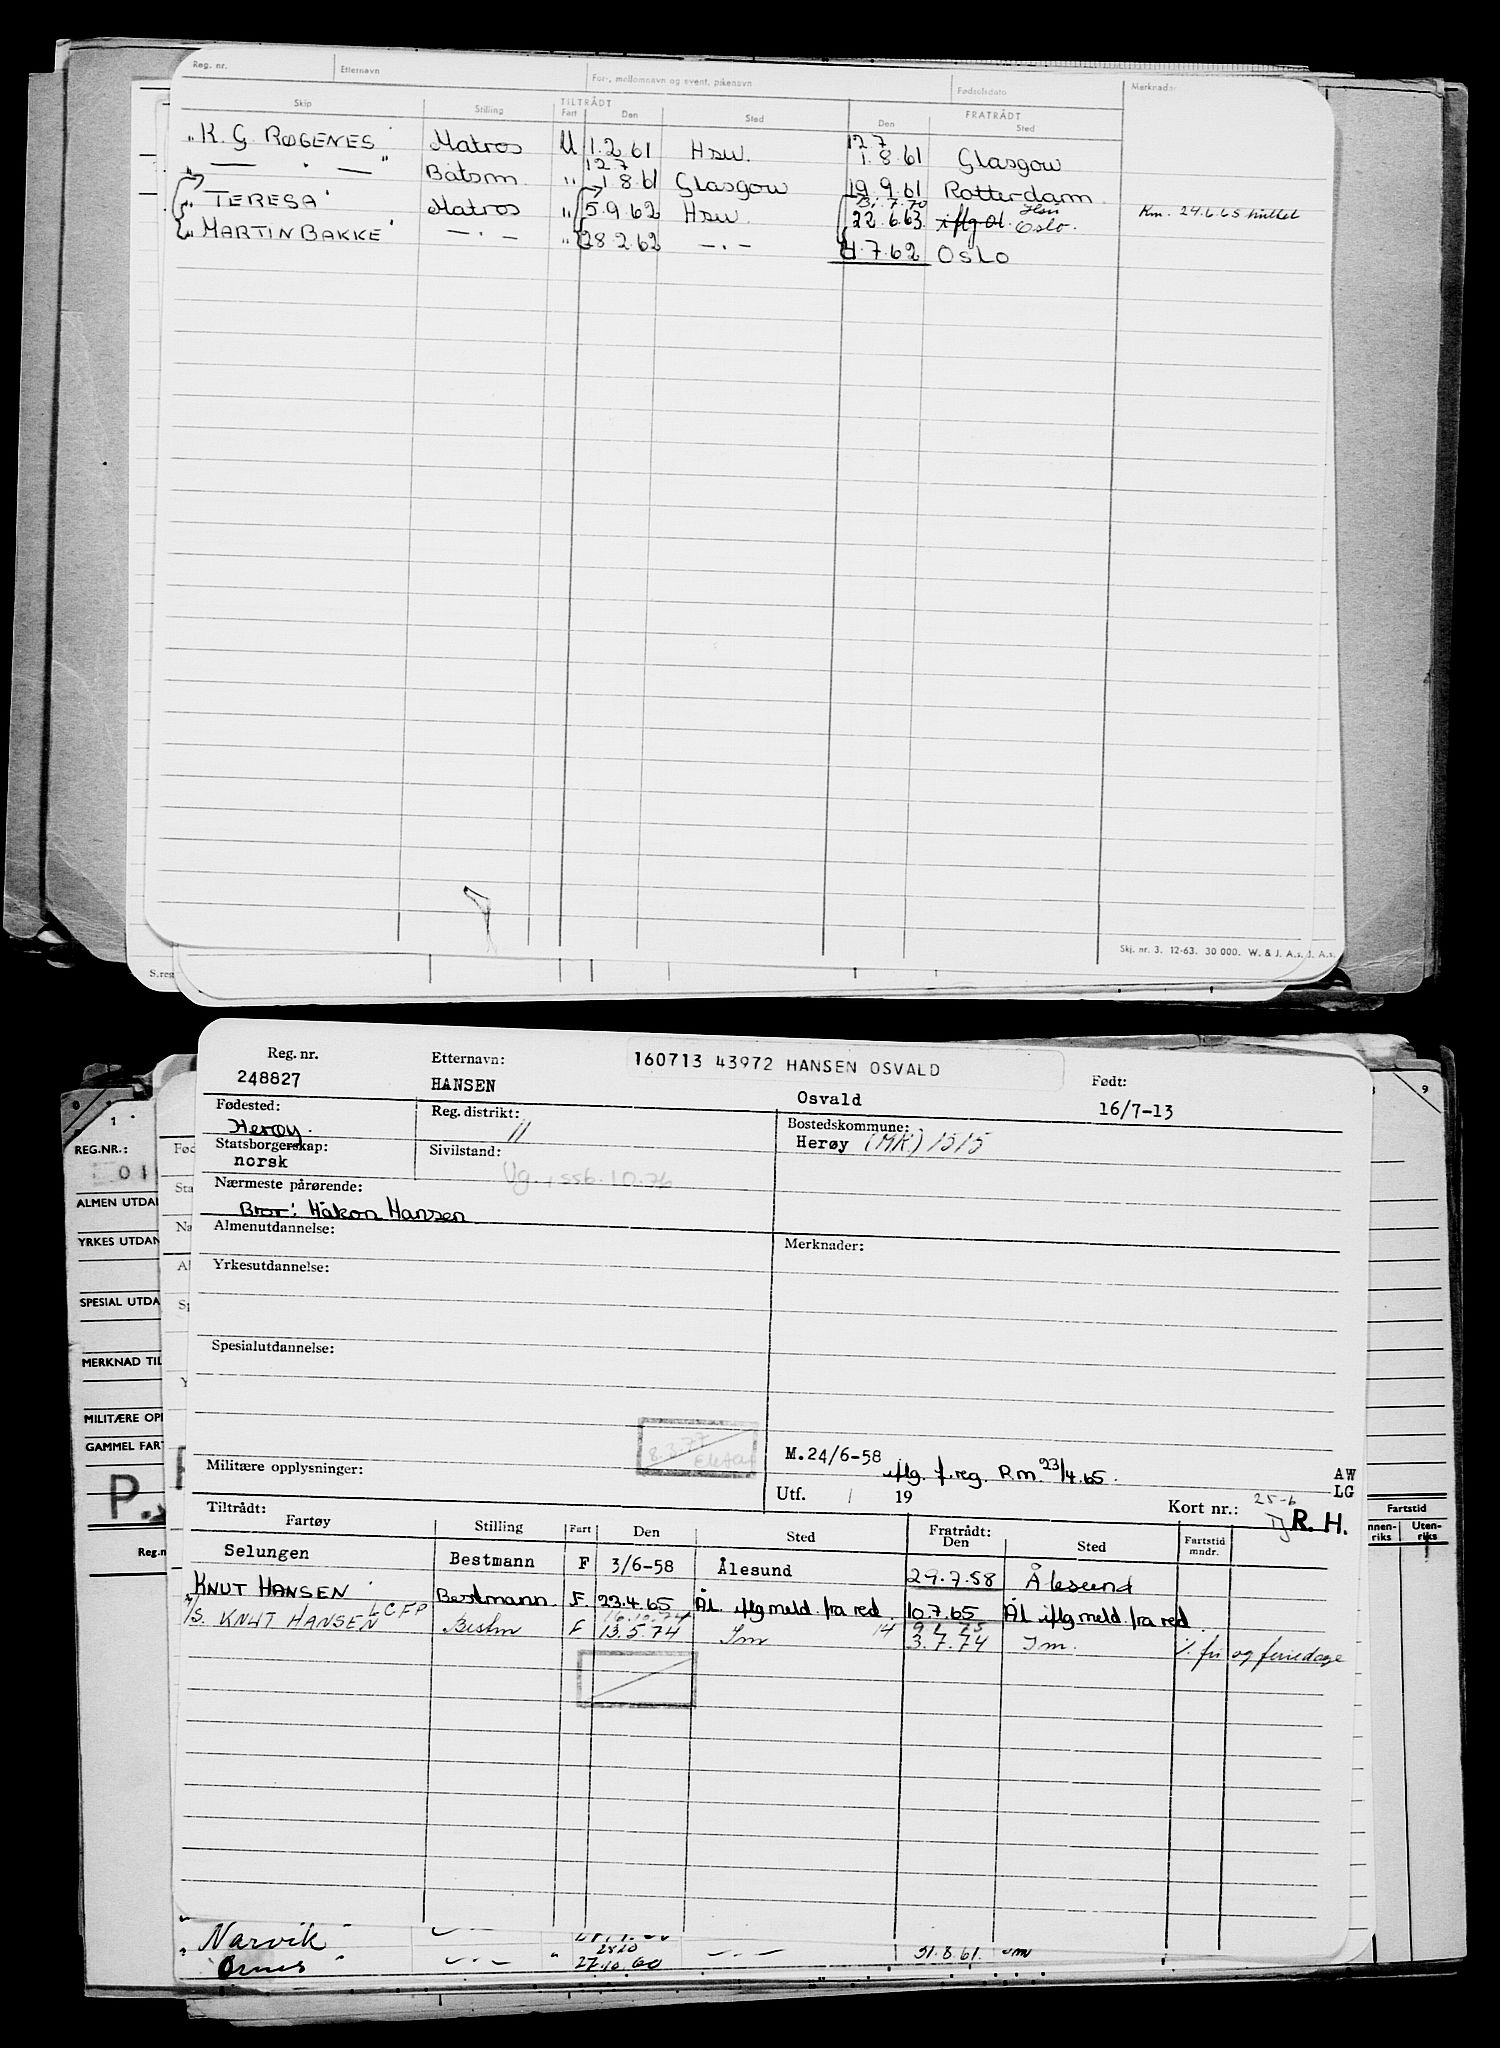 Reg. nr. Etternavn For-, mellomnavn og event. pikenavn Fødselsdato Merknader
TILTRÅDT FRATRÅDT
Skip Stilling Fart Den Sted Den Sted
"K. G. RØGENES" Matros U 1.2.61 Hsu. 12.7 1.8.61 Glasgow
— " — Båtsm. " 12.7 1.8.61 Glasgow 19.9.61 Rotterdam.
"TERESA" Matros " 5.9.62 Hsu. 31.7.70 22.6.63 iflg Ol. Hsu Oslo. Rm. 24.6.65 hullet
"MARTIN BAKKE" — . — " 28.2.62 — . — 4.7.62 OSLO
Skj. nr. 3. 12-63. 30 000. W. & J. A.s. J. A.s.
S.reg
Reg. nr. Etternavn: 160713 43972 HANSEN OSVALD Født:
248827 HANSEN Osvald 16/7-13
Fødested: Reg. distrikt: Bostedskommune:
Herøy. 11 Herøy (MR) 1515
Statsborgerskap: Sivilstand:
norsk Ug. , ssb. 10.76
Nærmeste pårørende:
Bror: Håkon Hansen
Almenutdannelse: Merknader:
Yrkesutdannelse:
Spesialutdannelse:
8.3.77
M.24/6-58 iflg. f. reg. Rm. 23/4.65.
Militære opplysninger: AW
LG
Utf. / 19 Kort nr.: 25-6 R. H.
Tiltrådt: Fratrådt:
Fartøy Stilling Fart Den Sted Den Sted Fartstid mndr.
Selungen Bestmann F 3/6-58 Ålesund 29.7.58 Ålesund
KNUT HANSEN Bestmann F 23.4.65 Ål. iflg meld. fra red. 10.7.65 Ål iflg meld fra red.
M/S. KNUT HANSEN LCFP Bestm F 16.10.74 13.5.74 Im 14 9.2.75 3.7.74 Im. ./. fri og feriedage
REG.NR.:
ALMEN UTDA
YRKES UTDAN
SPESIAL UTDA
MERKNAD TIL
MILITÆRE OPP
GAMMEL FART
P.
Reg.n
1
9
Fartstid
nnen-riks Uten-riks
"Narvik"
"Ørnes" — . — " 28.10 27.10.60 — . — 31.8.61